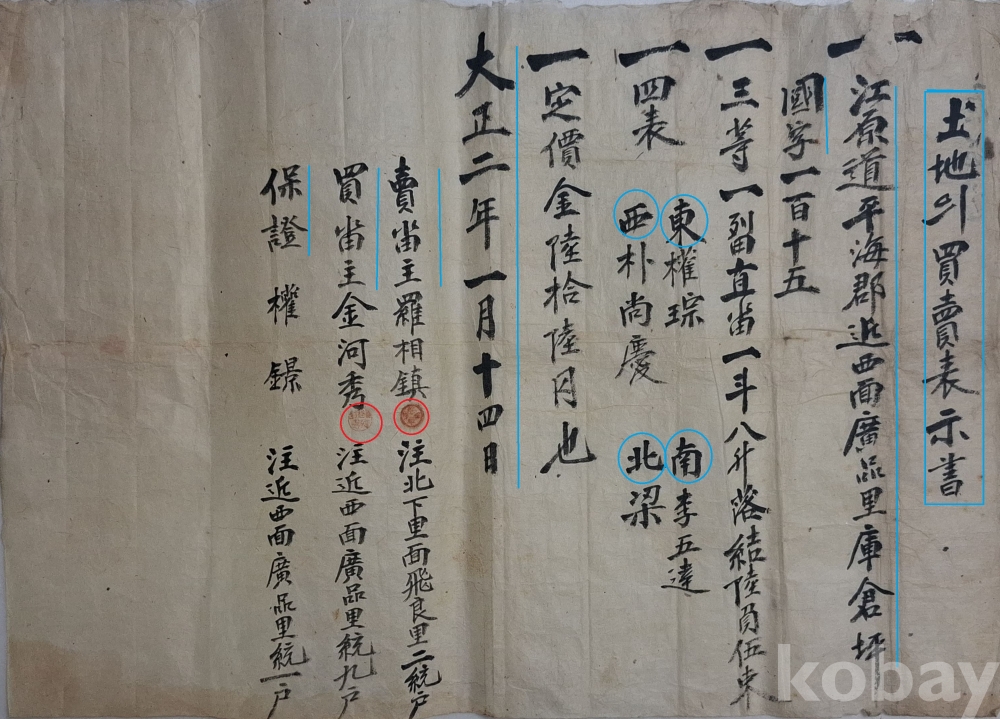 土地의買賣表示書
一 江原道平海郡近西面廣品里庫倉坪
一 國字一百十五
一 三等一列畓直畓一斗八升落結陸負伍束
一 四表 東權琮 南李五達
西朴尚慶 北梁
一 定價金陸拾陸円也
大正二年一月十四日
賣畓主羅相鎮 注北下里面飛良里二統戶
買畓主金河秀 注近西面廣品里統九戶
保證 權鐛 注近西面廣品里統一戶
kobay